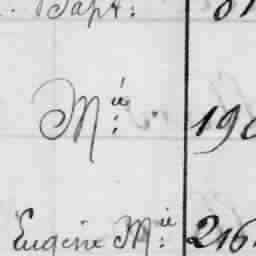 Bapt:
Mie: 190
Eugène Mie: 216